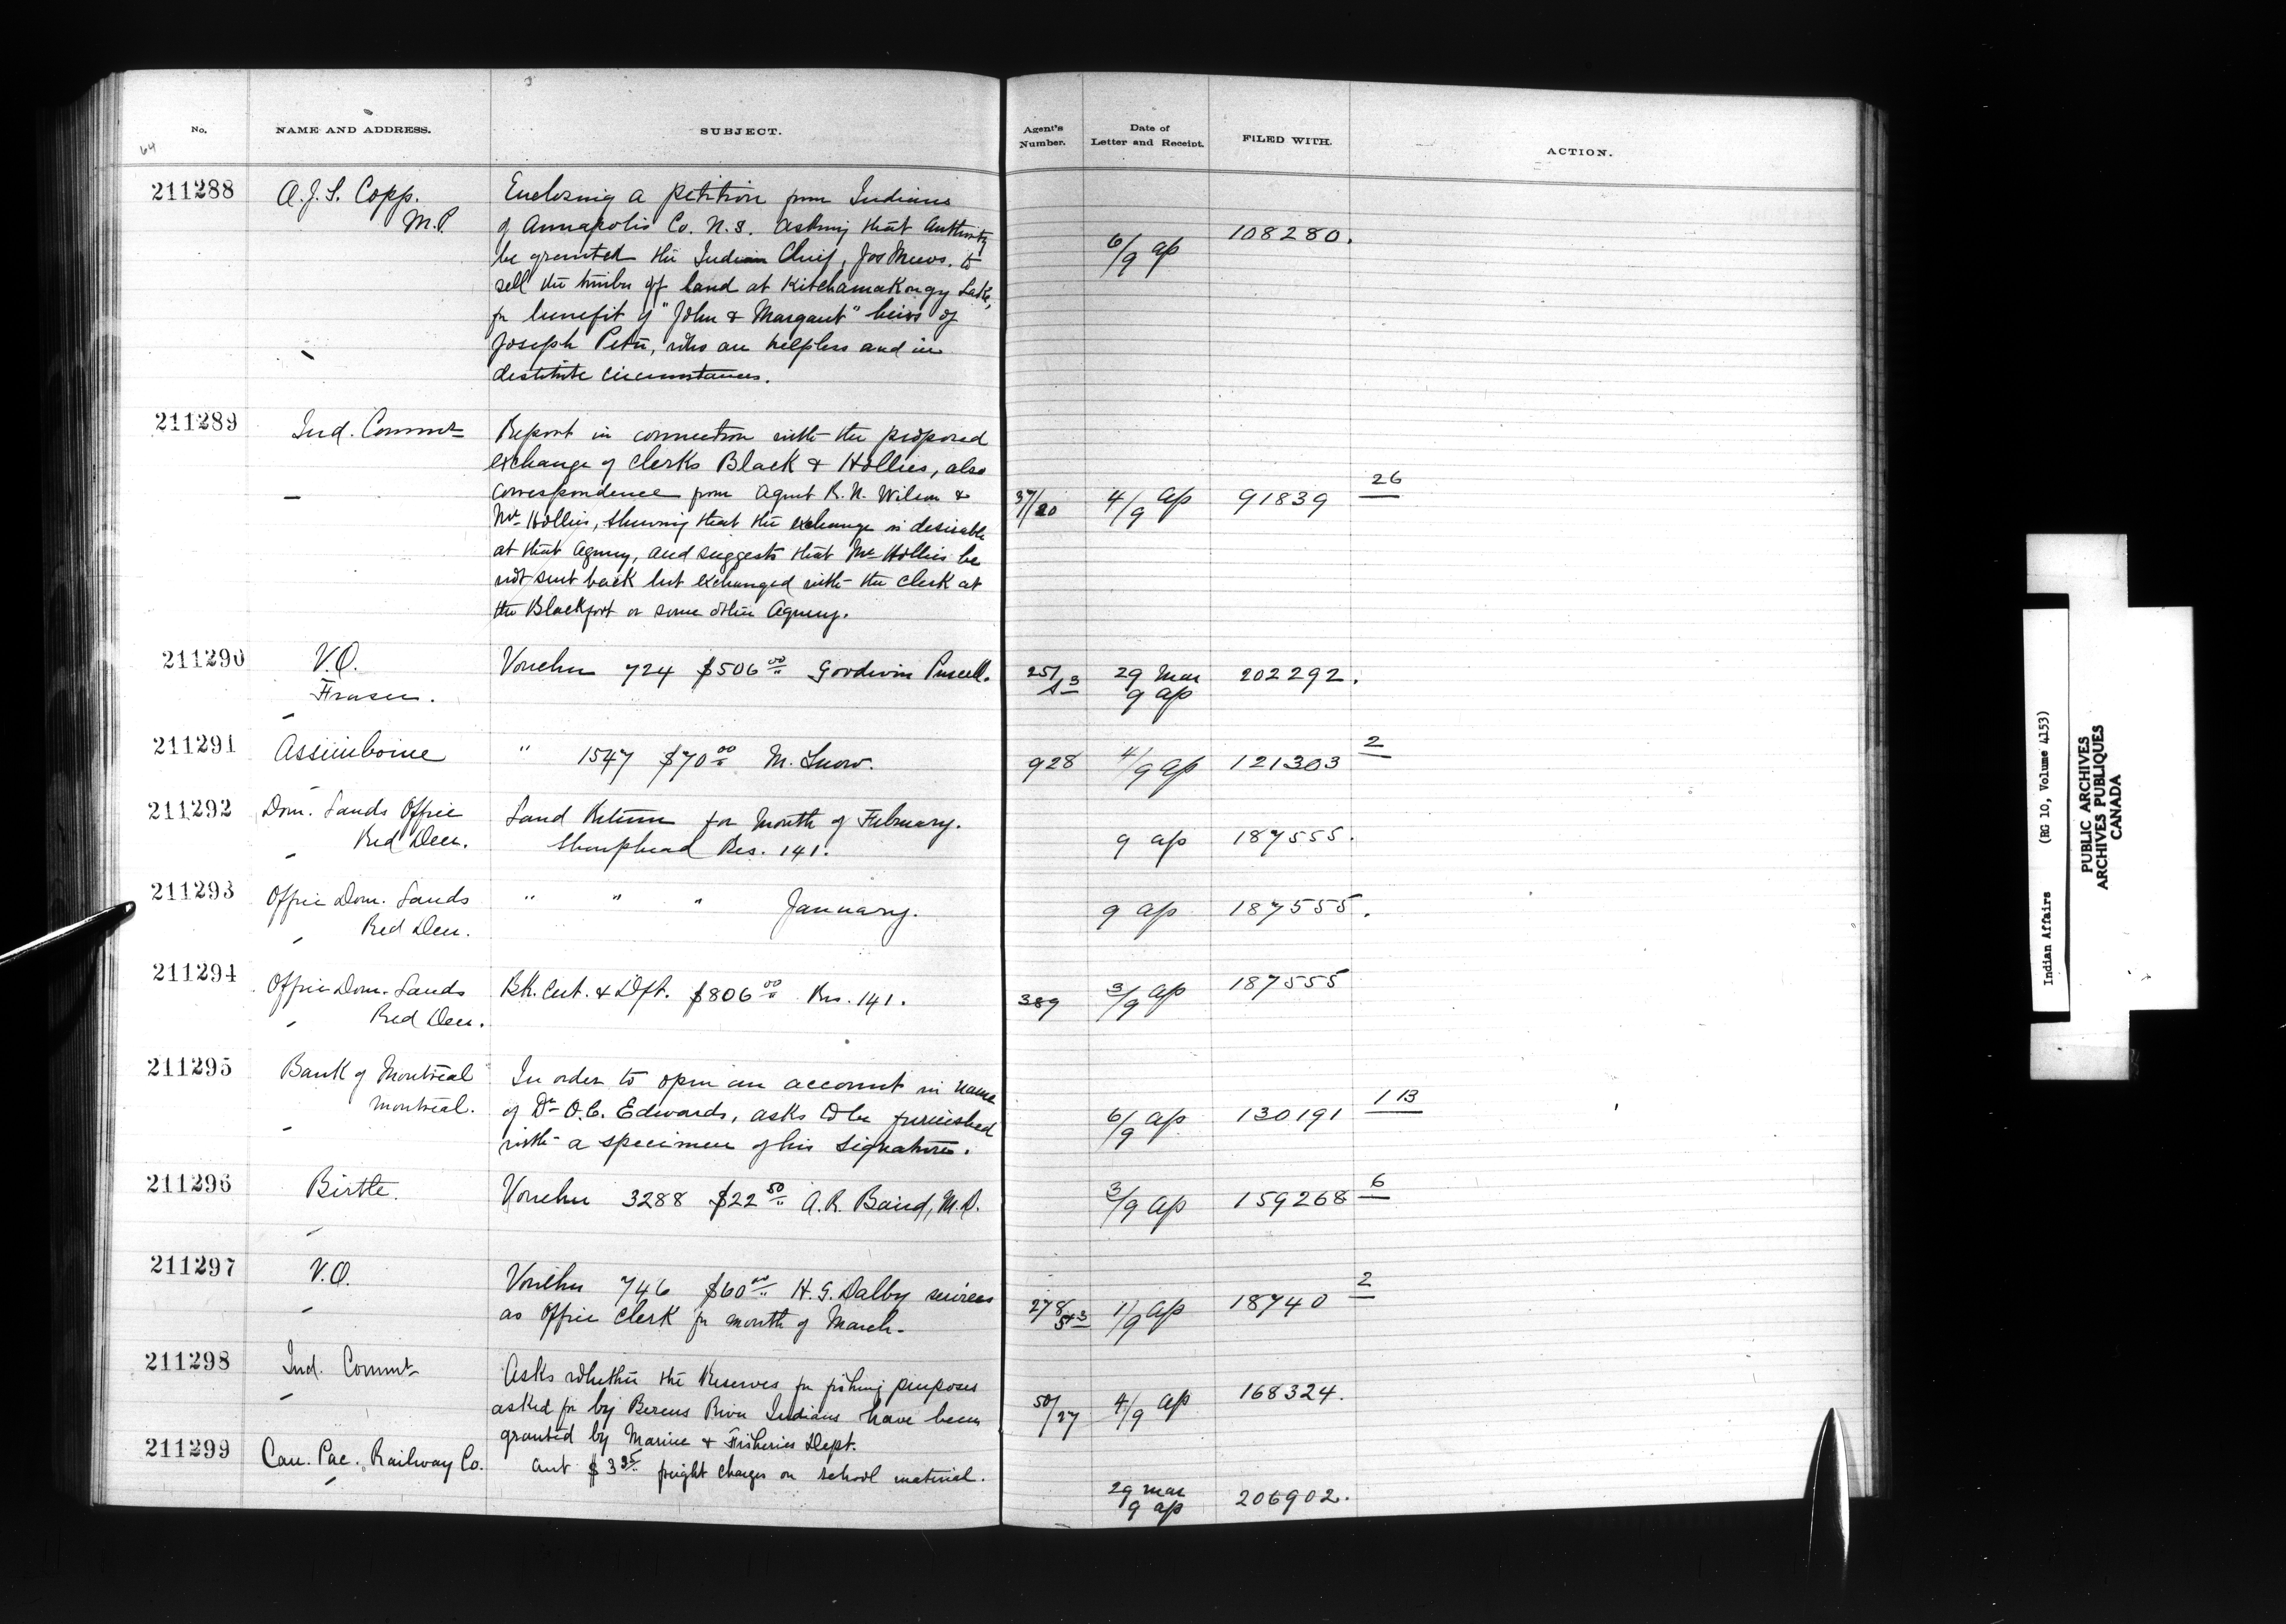 No. NAME AND ADDRESS. SUBJECT. Agent's Number. Date of Letter and Receipt. FILED WITH. ACTION.
64
211288 A.J.S. Copp. Enclosing a petition from Indians
M.P. of Annapolis Co. N.S. asking that authority
be granted the Indian Chief, Jos Mews. to 6/9 ap 108280.
sell the timber off land at Kitchamakongy Lake,
for benefit of "John & Margaret" heirs of
Joseph Peter, who are helpless and in
destitute circumstances.
211289 Ind. Commr Report in connection with the proposed
exchange of clerks Black & Hollies, also
correspondence from Agent R.N. Wilson & 37/20 4/9 ap 91839 26
Mr Hollies, shewing that the exchange is desirable
at that Agency, and suggests that Mr Hollies be
not sent back but exchanged with the clerk at
the Blackfoot or some other Agency.
211290 V.O. Voucher 724 $506 00 Goodwin Purcell. 251/13 29 Mar 202292.
Fraser. 9 ap
211291 Assiniboine " 1547 $70 00 M. Snow. 928 4/9 ap 121303 2
211292 Dom. Lands Office Land Return for Month of February.
Red Deer. Sharphead Res. 141. 9 ap 187555.
211293 Office Dom. Lands " " " January. 9 ap 187555.
Red Deer.
211294 Office Dom. Lands Bk. Cert. & Dft. $806 00 Res. 141. 389 3/9 ap 187555
Red Deer.
211295 Bank of Montreal In order to open an account in name
Montreal. of Dr O.C. Edwards, asks to be furnished 6/9 ap 130191 1 13
with a specimen of his signature.
211296 Birtle. Voucher 3288 $22 50 A.R. Baird, M.D. 3/9 ap 159268 6
211297 V.O. Voucher 746 $60 00 H.G. Dalby services 278/543 1/9 ap 18740 2
as Office Clerk for month of March.
211298 Ind. Commr Asks whether the Reserves for fishing purposes
asked for by Berens River Indians have been 50/27 4/9 ap 168324.
granted by Marine & Fisheries Dept.
211299 Can. Pac. Railway Co. Acct $3 35 freight charges on school material.
29 mar 206902.
9 ap
Indian Affairs (RG 10, Volume 4153)
PUBLIC ARCHIVES
ARCHIVES PUBLIQUES
CANADA